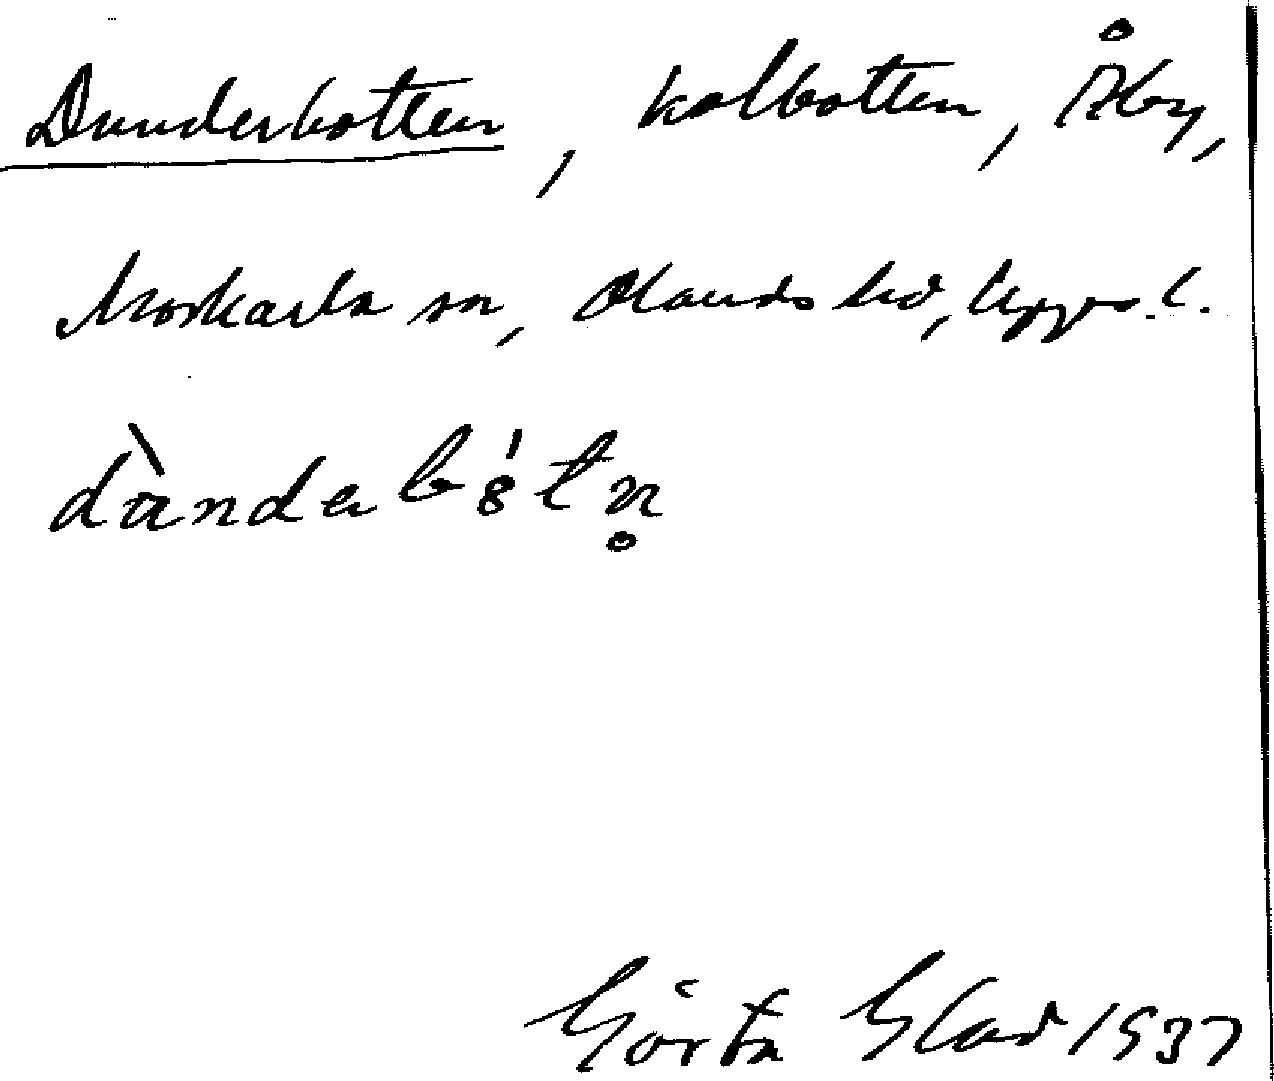 Dunderbotten, kolbotten, Åby,
Morkarla sn, Olands hd, Uppsal.
dàndebótn̥
Görta Glad 1937